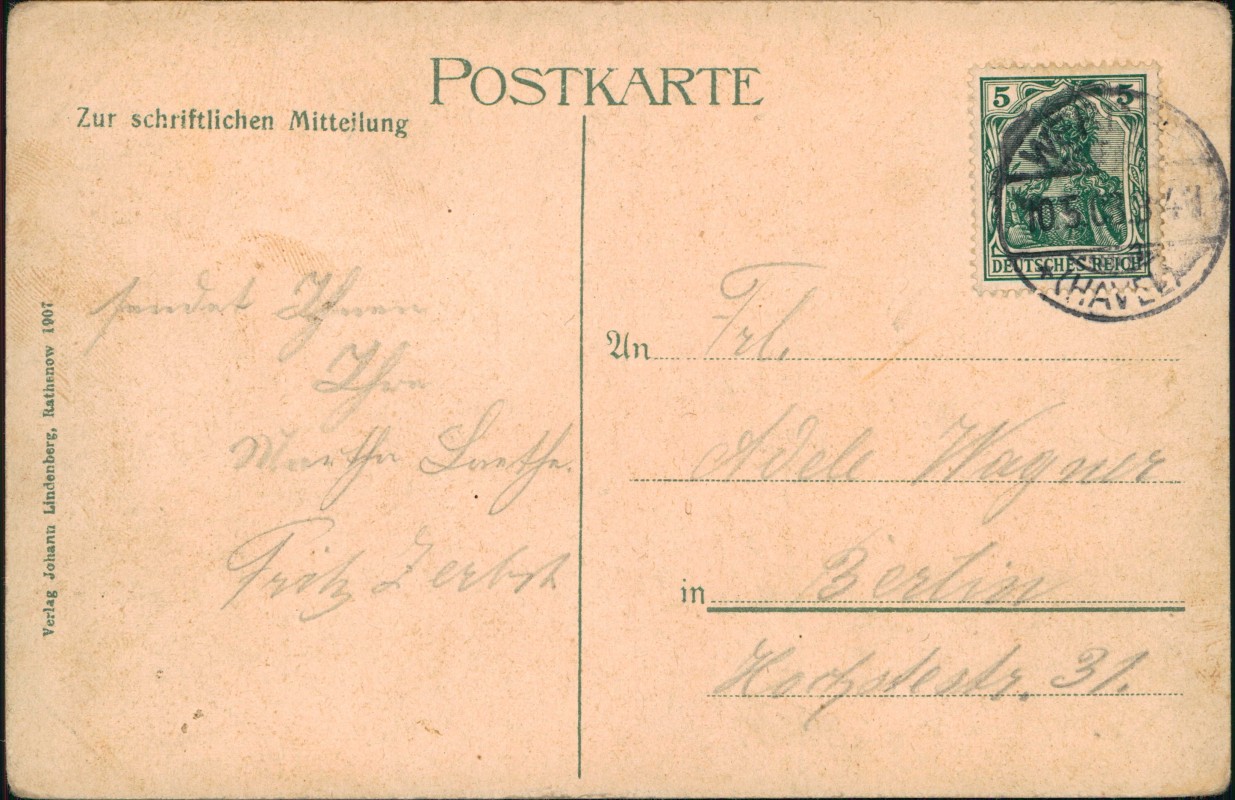 POSTKARTE
Zur schriftlichen Mitteilung
5 5
DEUTSCHES REICH
(HAVEL)
sendet Ihnen
Ihre
Martha
Fritz Zerbst
An Frl.
Adele Wagner
in Berlin
31.
Verlag Johann Lindenberg, Rathenow 1907